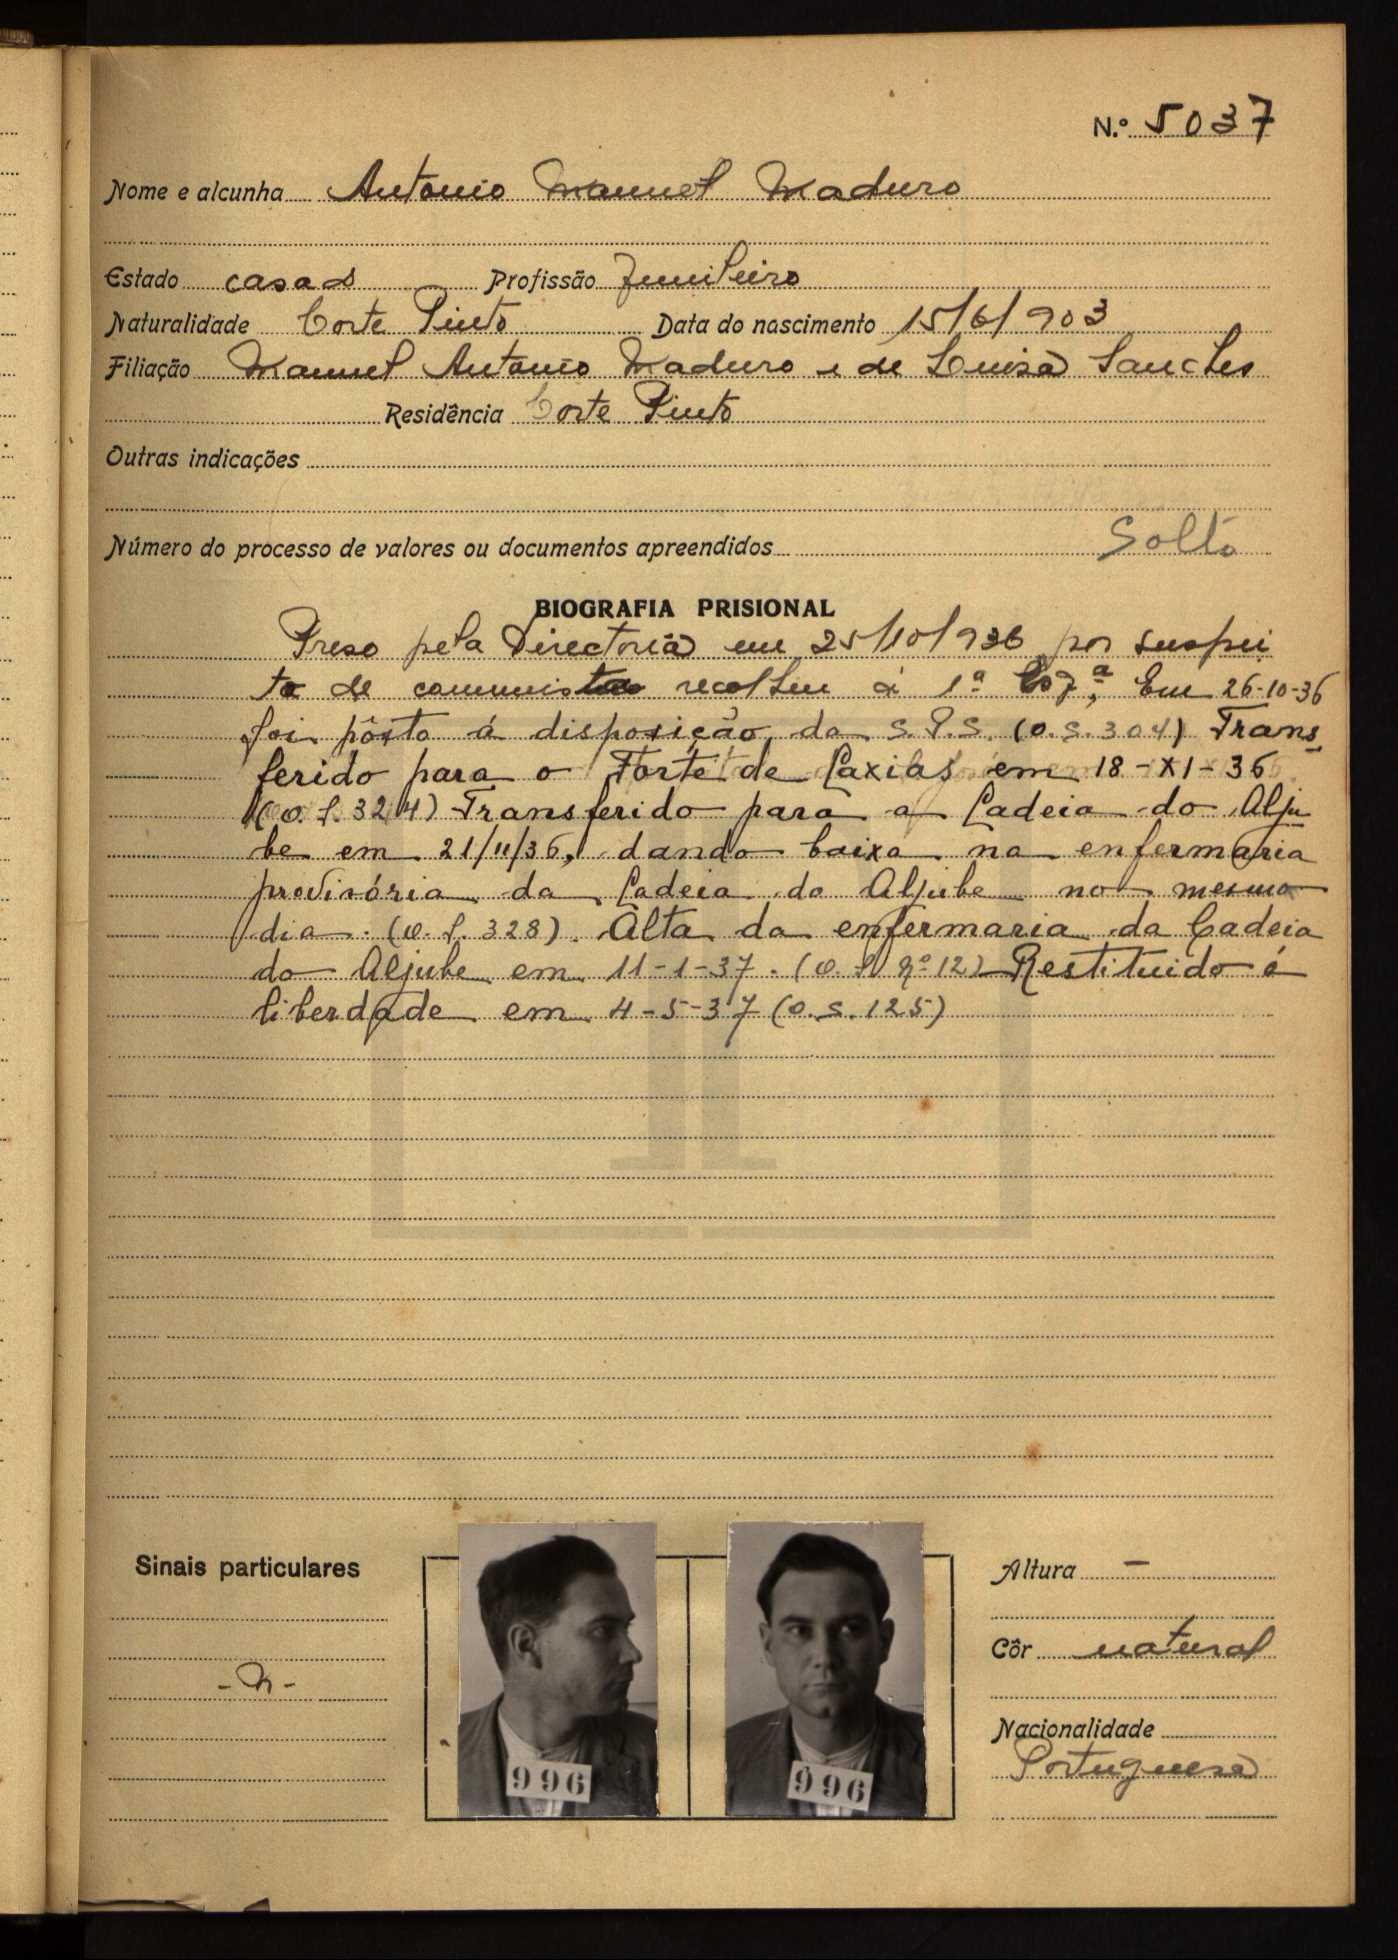 N.º 5037
Nome e alcunha Antonio Manuel Maduro
Estado casado Profissão Funileiro
Naturalidade Corte Pinto Data do nascimento 15/6/903
Filiação Manuel Antonio Maduro e de Luisa Sanches
Residência Corte Pinto
Outras indicações
Número do processo de valores ou documentos apreendidos Solto
BIOGRAFIA PRISIONAL
Preso pela Directoria em 25/10/936 por suspei
ta de comunista recolheu á 1ª Em 26-10-36
foi pôsto á disposição da S.P.S. (O.S. 304) Trans
ferido para o Forte de Caxias em 18-XI-36
(O.S. 324) Transferido para a Cadeia do Alju
be em 21/11/36, dando baixa na enfermaria
provisória da Cadeia do Aljube no mesmo
dia. (O.S. 328). Alta da enfermaria da Cadeia
do Aljube em 11-1-37. (O.S. nº 12) Restituido á
liberdade em 4-5-37 (O.S. 125)
Sinais particulares
- N -
996
996
Altura —
Côr natural
Nacionalidade
Portuguesa